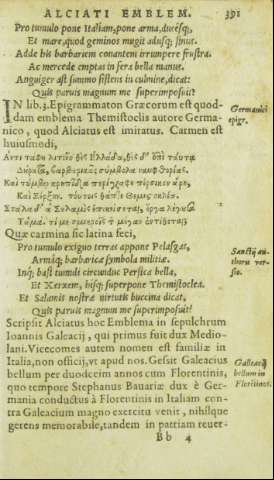 ALCIATI EMBLEM. 391
Pro tumulo pone Italiam, pone arma, ducesq́;,
Et mare, quod geminos mugit adusq́; sinus.
Adde his barbariem conantem irrumpere frustrà,
Ac mercede emptas in fera bella manus.
Anguiger ast summo sistens in culmine, dicat:
Quis paruis magnum me superimposuit?
IN lib. 3. Epigrammaton Græcorum est quod-
dam emblema Themistoclis autore Germa-
nico, quod Alciatus est imitatus. Carmen est
huiusmodi,
Germanici
epigr.
Ἀντὶ τάφου λιτοῖο θὲς Ἑλλάδα, θὲς δ' ἐπὶ ταύτᾳ
Δούρατα, βαρβαρικᾶς σύμβολα ναυφθορίας.
Quæ carmina sic latina feci,
Pro tumulo exiguo terras appone Pelasgas,
Armáq; barbaricæ symbola militiæ.
Inq; basi tumdi circunduc Persica bella,
Et Xerxem, hisq; superpone Themistoclea.
Et Salamis nostræ virtutis buccina dicat,
Quis paruis magnum me superimposuit?
Sanctij au-
thoris ver-
sio.
Scripsit Alciatus hoc Emblema in sepulchrum
Ioannis Galeacij, qui primus fuit dux Medio-
lani. Vicecomes autem nomen est familiæ in
Italia, non officij, vt apud nos. Gessit Galeacius
bellum per duodecim annos cum Florentinis,
quo tempore Stephanus Bauariæ dux è Ger-
mania conductus à Florentinis in Italiam con-
tra Galeacium magno exercitu venit, nihilque
gerens memorabile, tandem in patriam reuer-
Galleacij
bellum in
Florētinos.
Bb 4